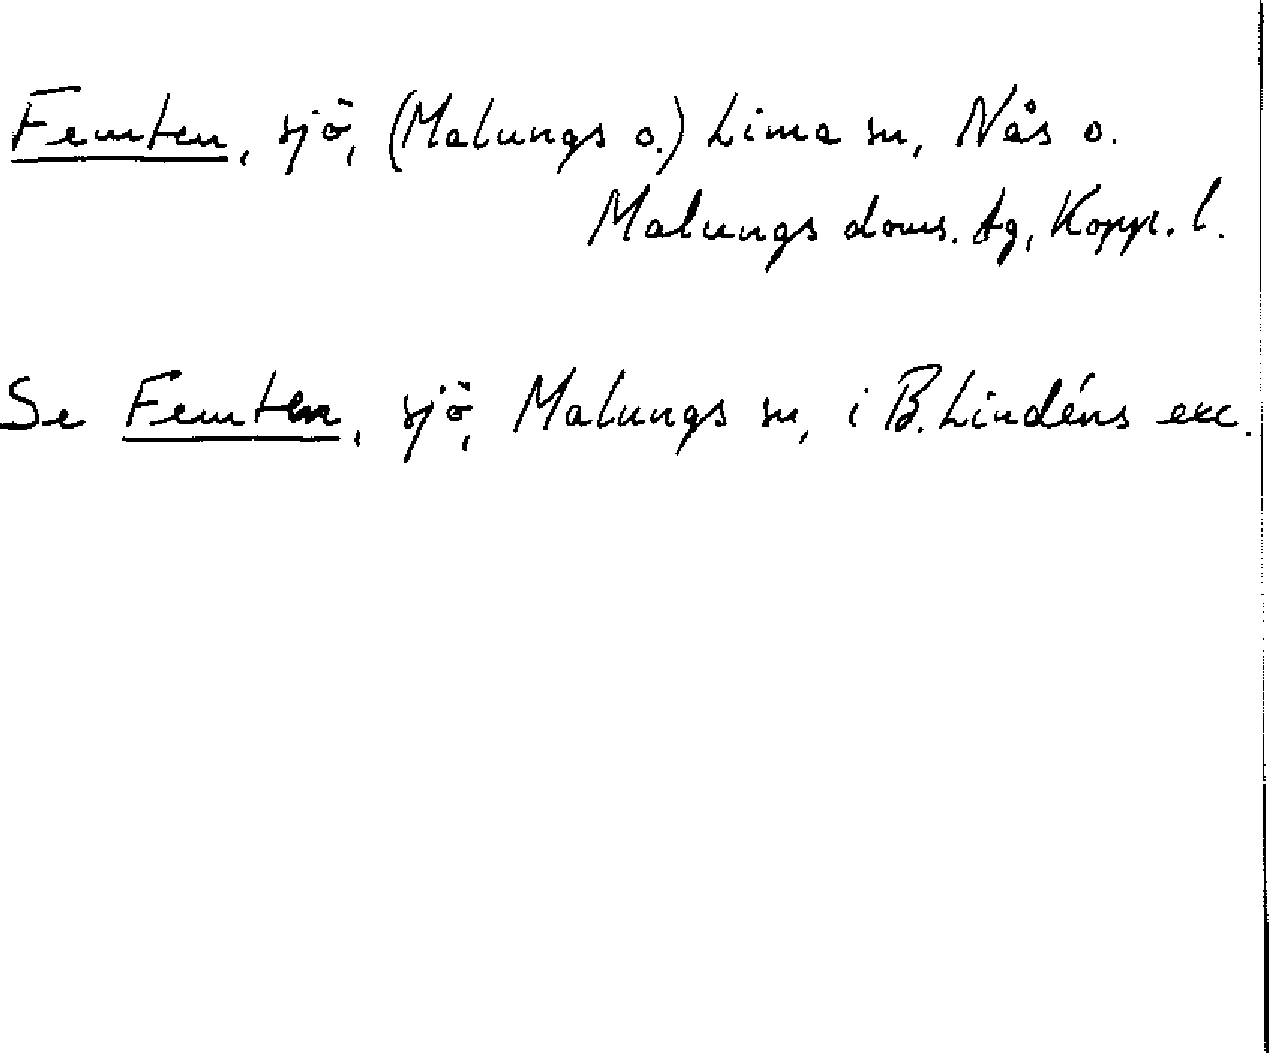 Femten, sjö, (Malungs o.) Lima sn, Nås o.
Malungs doms. tg, Kopp. l.
Se Femten, sjö, Malungs sn, i B. Lindéns exc.